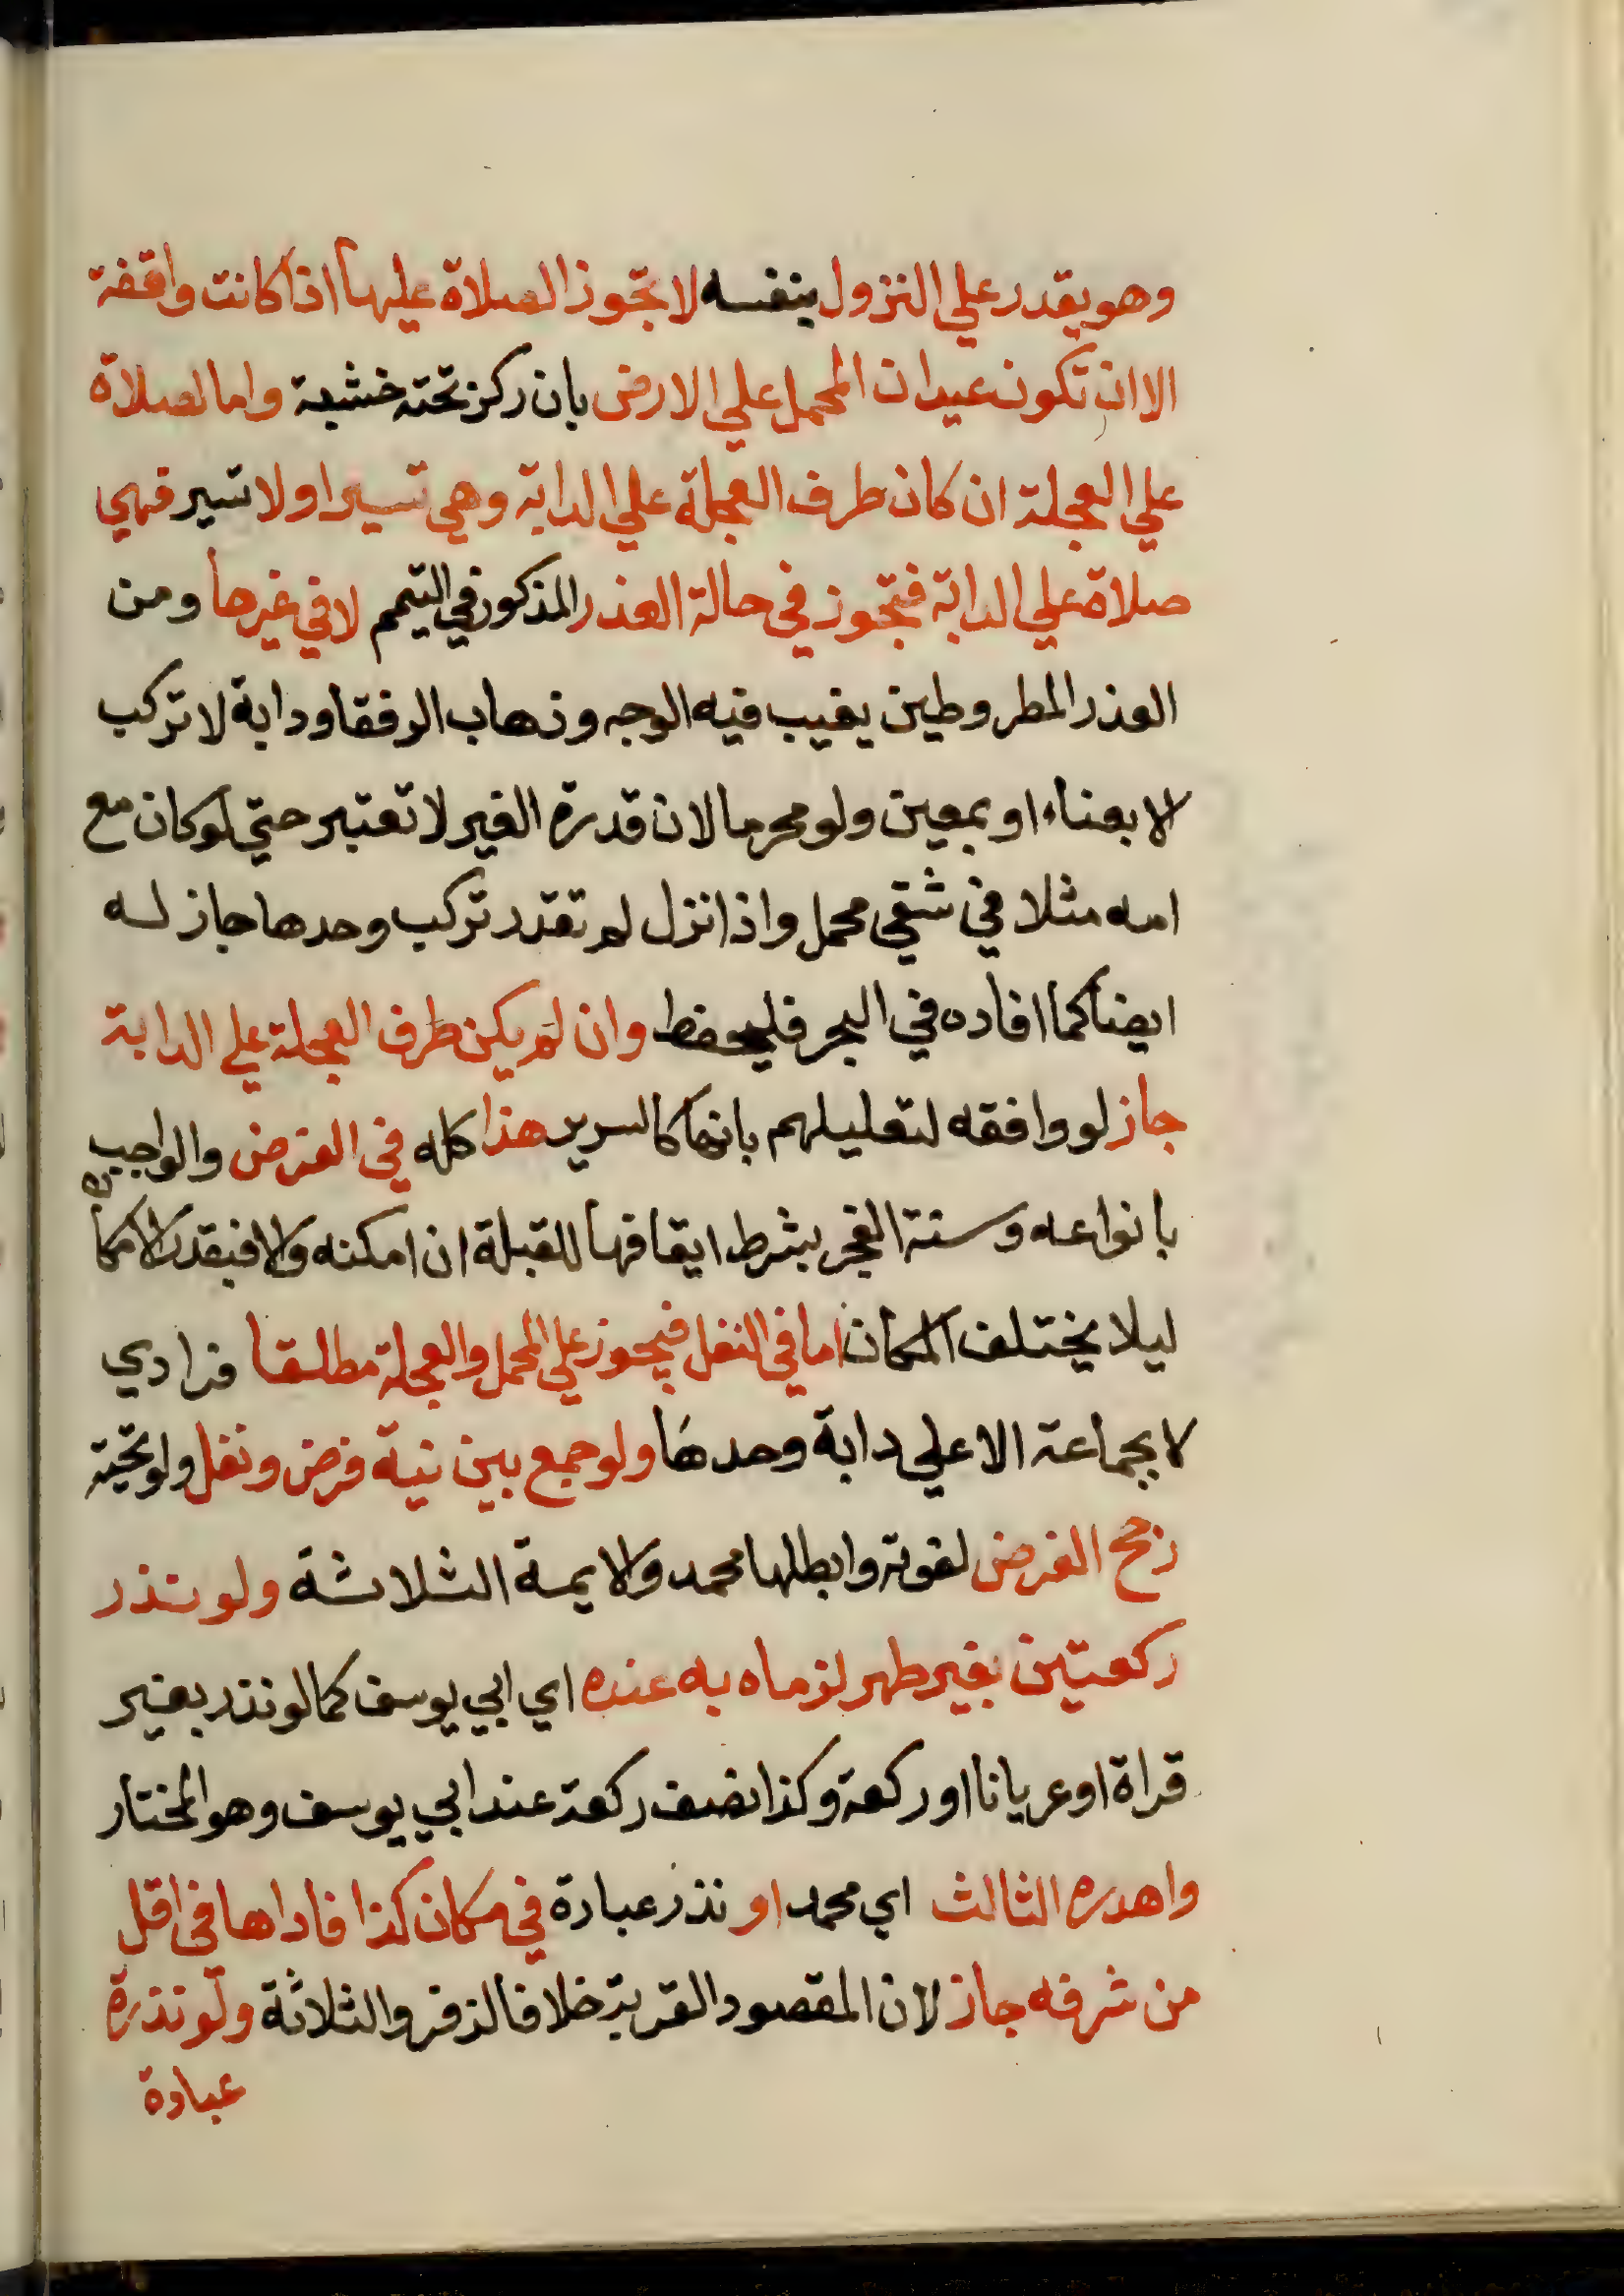 وهو يقدر علي النزول بنفسه لا تجوز الصلاة عليها اذا كانت واقفة
الا ان تكون عيدان المحمل علي الارض بان ركز تحته خشبة واما الصلاة
علي العجلة ان كان طرف العجلة علي الدابة وهي تسير اولا تسير فهي
صلاة علي الدابة فتجوز في حالة العذر المذكور في التيمم لا في غيرها ومن
العذر المطر وطين يغيب فيه الوجه وذهاب الرفقا ودابة لا تركب
الا بعناء او بمعين ولو محرما لان قدرة الغير لا تعتبر حتي لو كان مع
امه مثلا في شقي محمل واذا نزل لم تقدر تركب وحدها جاز له
ايضا كما افاده في البحر فليحفظ وان لم يكن طرف العجلة علي الدابة
جاز لو وافقه لتعليلهم بانها كالسرير هذا كله في الفرض والواجب
بانواعه وسنة الفجر بشرط ايقافها للقبلة ان امكنه والا فبقدر الامكان
ليلا يختلف المكان اما في النفل فيجوز علي المحمل والعجلة مطلقا فرادي
لا بجماعة الا علي دابة وحدها ولو جمع بين نية فرض ونفل ولو تحية
رجح الفرض لقوته وابطلها محمد والايمة الثلاثة ولو نذر
ركعتين بغير طهر لزماه به عنده اي ابي يوسف كما لو نذر بغير
قراة او عريانا او ركعة وكذا نصف ركعة عند ابي يوسف وهو المختار
واهدره الثالث اي محمد او نذر عبادة في مكان كذا فاداها في اقل
من شرفه جاز لان المقصود القربة خلافا لزفر والثلاثة ولو نذرة
عبادة